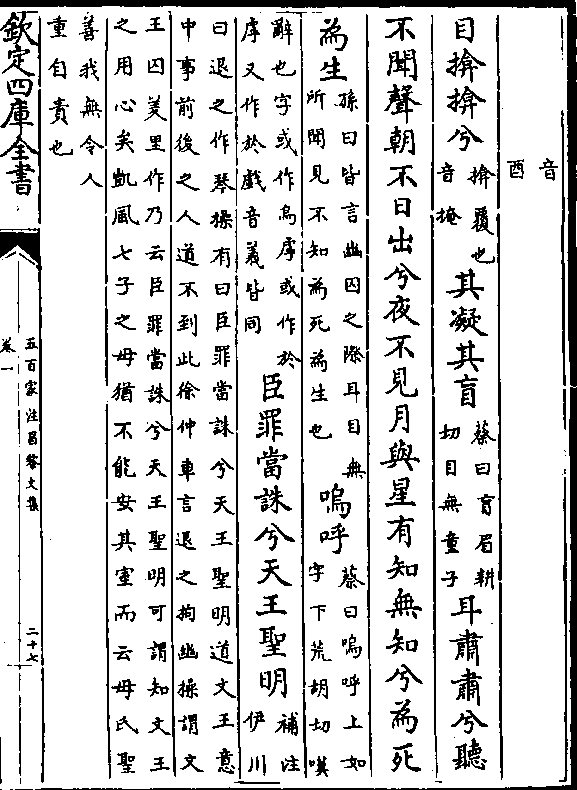 音
酉
目揜揜兮
揜覆也
音掩
其凝其盲
蔡曰盲眉耕
切目無童子
耳肅肅兮聽
不聞聲朝不日出兮夜不見月與星有知無知兮為死
為生
孫曰皆言幽囚之際耳目無
所聞見不知為死為生也
嗚呼
蔡曰嗚呼上如
字下荒胡切嘆
辭也字或作烏虖或作於
虖又作於戲音義皆同
臣罪當誅兮天王聖明
補注
伊川
曰退之作琴操有曰臣罪當誅兮天王聖明道文王意
中事前後之人道不到此徐仲車言退之拘幽操謂文
王囚羑里作乃云臣罪當誅兮天王聖明可謂知文王
之用心矣凱風七子之母猶不能安其室而云母氏聖
善我無令人
重自責也
欽定四庫全書
五百家注昌黎文集
卷一
二十七